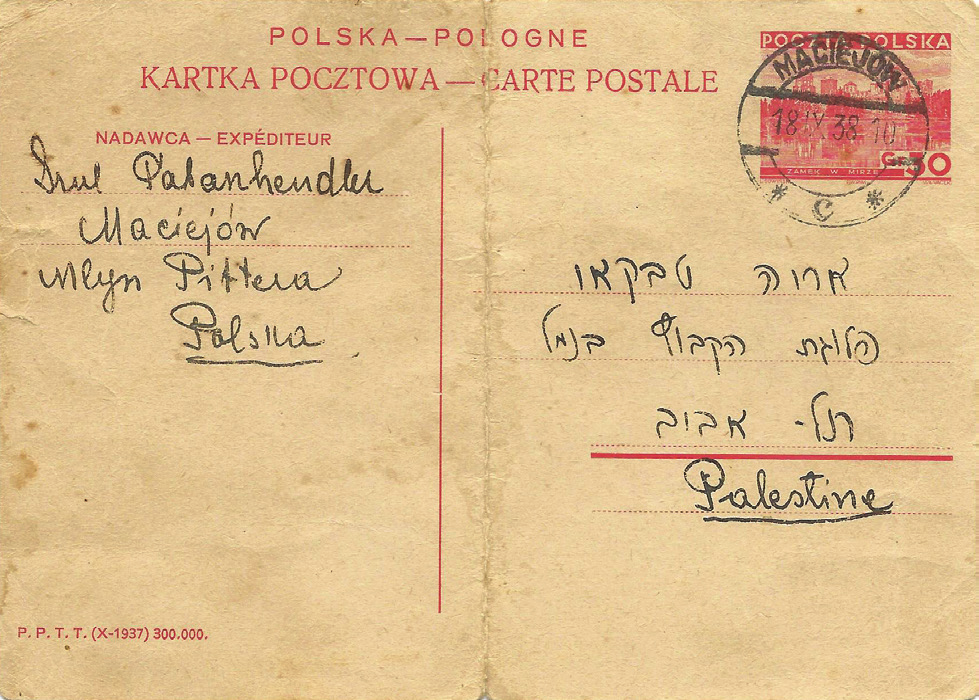 POLSKA — POLOGNE
KARTKA POCZTOWA — CARTE POSTALE
POCZTA POLSKA
MACIEJÓW
18 IX 38 10
GR. 30
ZAMEK W MIRZE
* C *
NADAWCA — EXPÉDITEUR
Srul Patanhendler
Maciejów
Młyn Pittera
Polska
אריה טבקאו
פלוגת הקבוץ בנמל
תל-אביב
Palestine
P. P. T. T. (X-1937) 300.000.